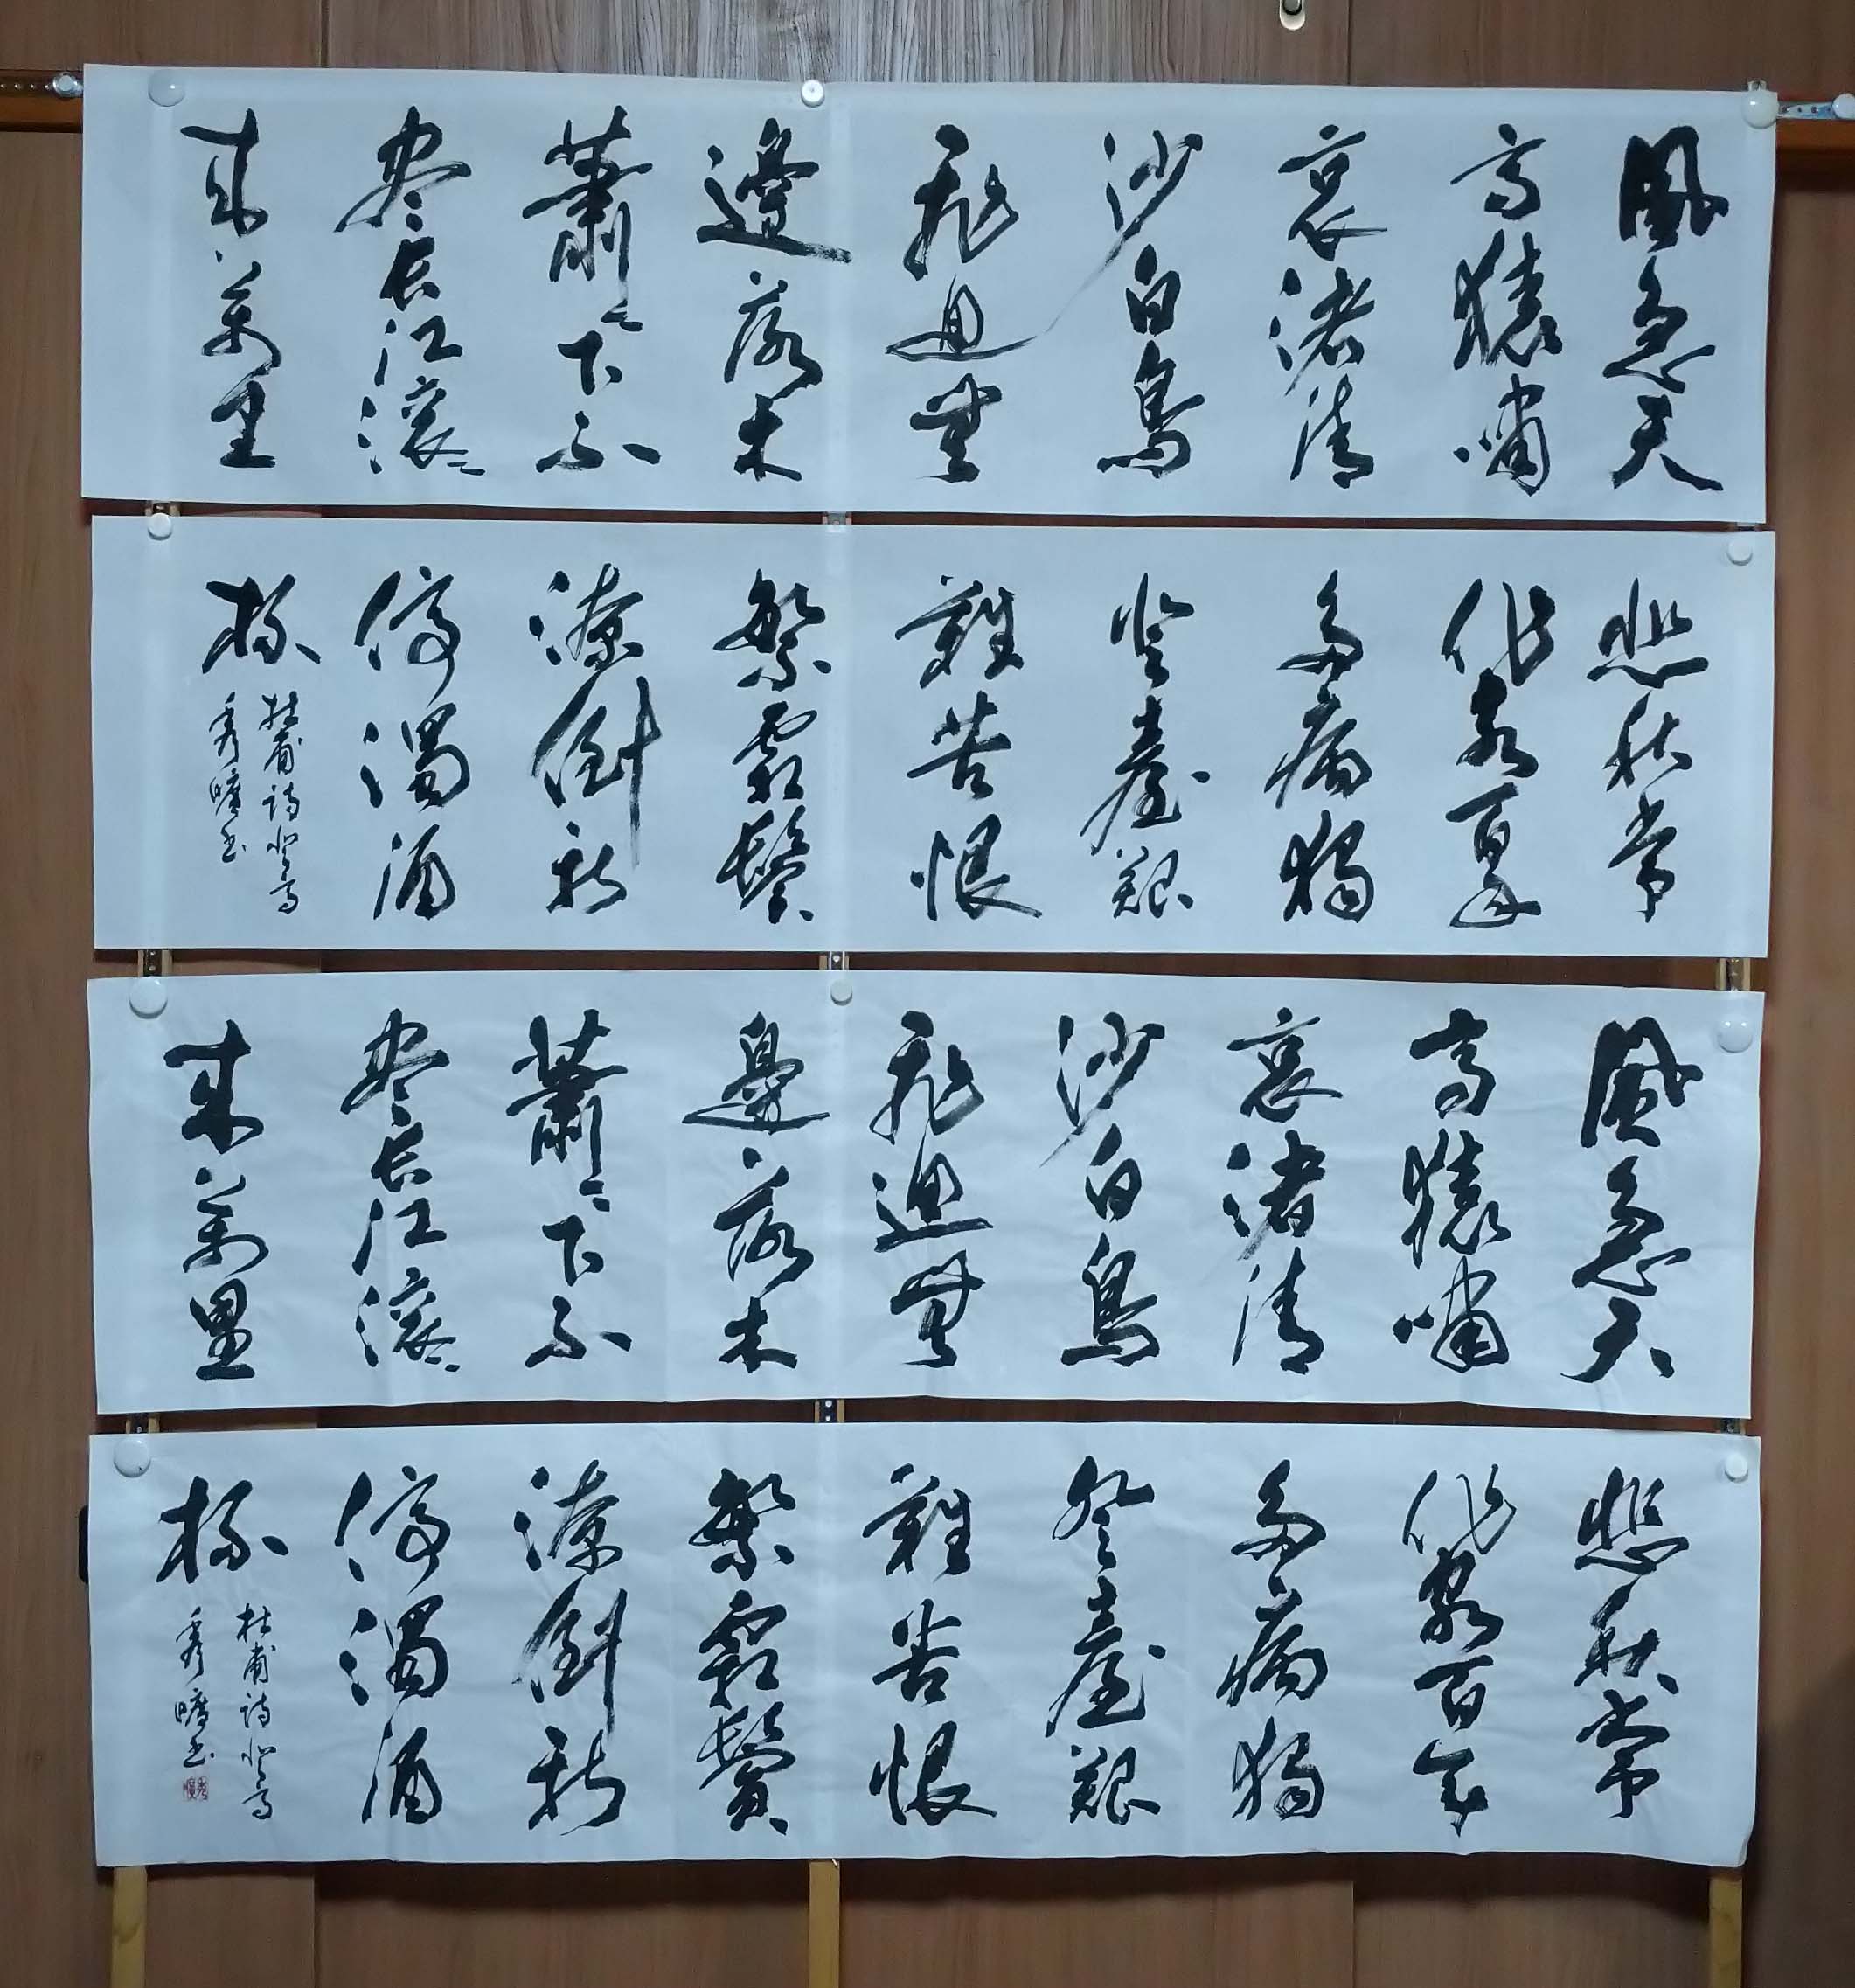 風急天
高猿嘯
哀渚清
沙白鳥
飛迴無
邊落木
蕭〻下不
盡長江滾〻
來萬里
悲秋常
作客百年
多病獨
登臺艱
難苦恨
繁霜鬢
潦倒新
停濁酒
杯
杜甫詩登高
秀曠书
風急天
高猿嘯
哀渚清
沙白鳥
飛迴無
邊落木
蕭〻下不
盡長江滾〻
來萬里
悲秋常
作客百年
多病獨
登臺艱
難苦恨
繁霜鬢
潦倒新
停濁酒
杯
杜甫詩登高
秀曠书